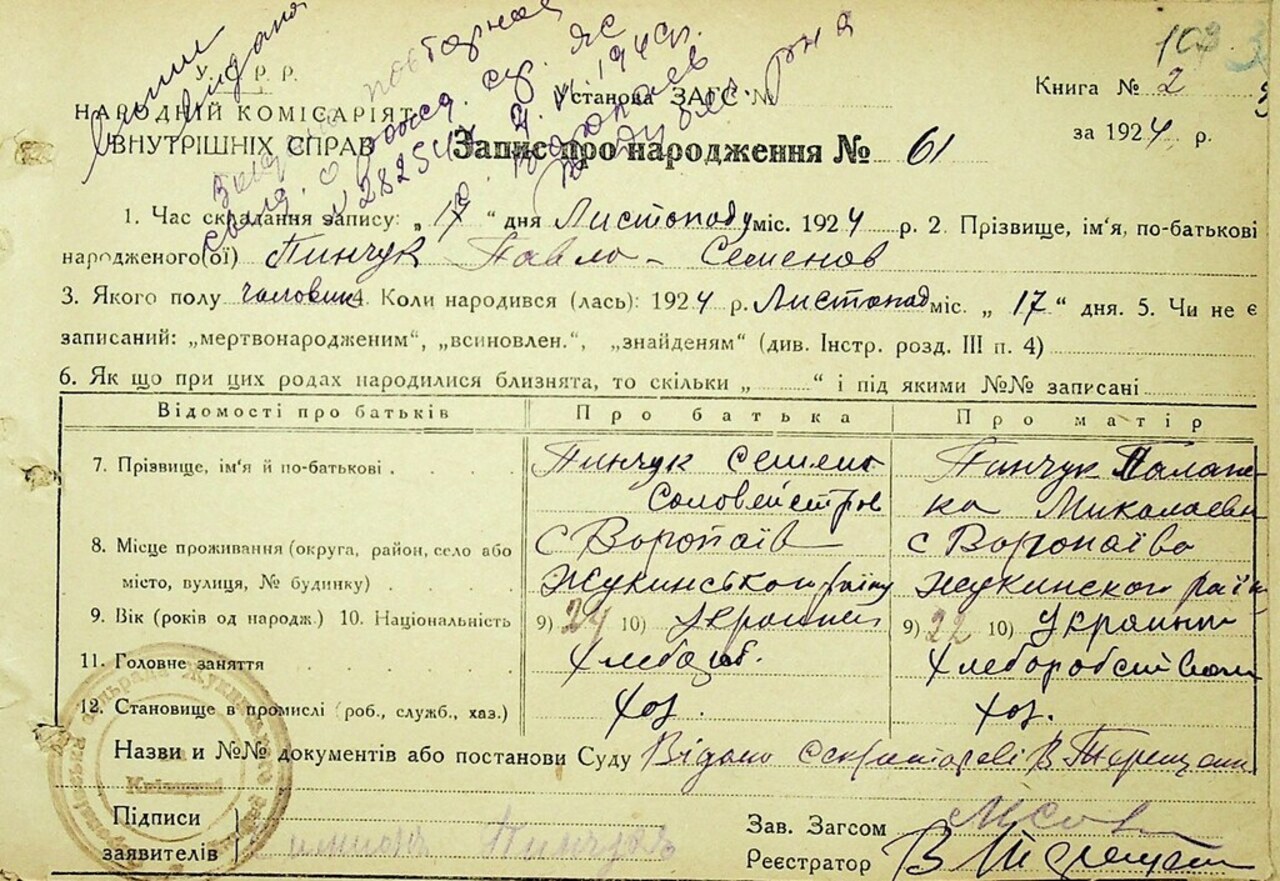 виписи
видана
У. Р. Р.
НАРОДНІЙ КОМІСАРІЯТ
ВНУТРІШНІХ СПРАВ
повторная
№ 28254
1940 р.
Установа ЗАГС №
Книга № 2
за 1924 р.
Запис про народження № 61
1. Час складання запису: „ 17 “ дня Листопаду міс. 1924 р. 2. Прізвище, ім'я, по-батькові
народженого(ої) Пинчук Павло - Семенов
3. Якого полу чоловик 4. Коли народився (лась): 1924 р. Листопад міс. „ 17 “ дня. 5. Чи не є
записаний: „мертвонародженим“, „всиновлен.“, „знайденям“ (див. Інстр. розд. III п. 4)
6. Як що при цих родах народилися близнята, то скільки „ “ і під якими №№ записані
Відомості про батьків Про батька Про матір
7. Прізвище, ім'я й по-батькові Пинчук Семен Пинчук Палаж-
ка Миколаевн
8. Місце проживання (округа, район, село або с Воропаїв с Воропаїво
місто, вулиця, № будинку) Жукинського раїну Жукинского раїн
9. Вік (років од народж.) 10. Національність 9) 24 10) Украинец 9) 22 10) Украинк
11. Головне заняття Хлебороб. Хлеборобством
12. Становище в промислі (роб., служб., хаз.) хоз. хоз.
Назви и №№ документів або постанови Суду Відомо Секритареві В Терещенк
Підписи
заявителів Пинчукъ
Зав. Загсом
Реєстратор В Терещенк